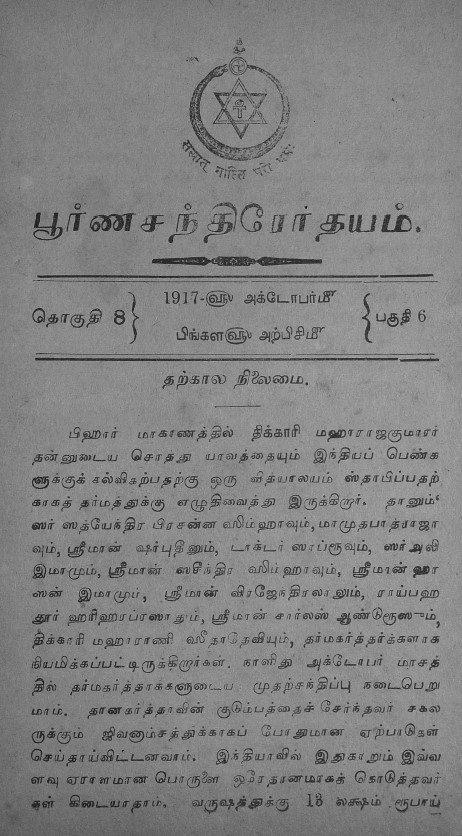 ஸத்யாத் நாஸ்தி பரோ தர்ம:
பூர்ணசந்திரோதயம்.
தொகுதி 8 } 1917-ஹு அக்டோபர்மீ { பகுதி 6
பிங்களஹு அற்பிசிமீ
தற்கால நிலைமை.
பிஹார் மாகாணத்தில் திக்காரி மஹாராஜகுமாரர்
தன்னுடைய சொத்து யாவத்தையும் இந்தியப் பெண்க
ளுக்குக் கல்விகற்பதற்கு ஒரு வித்யாலயம் ஸ்தாபிப்பதற்
காகத் தர்மத்துக்கு எழுதிவைத்து இருக்கிறார். தானும்
ஸர் ஸத்யேந்திர பிரசன்ன ஸிம்ஹாவும், மாமுதபாத்ராஜா
வும், ஸ்ரீமான் ஷர்புதீனும், டாக்டர் ஸாப்ரூவும், ஸர் அலி
இமாமும், ஸ்ரீமான் ஸசீந்திர ஸிம்ஹாவும், ஸ்ரீமான் ஹா
ஸன் இமாமும், ஸ்ரீமான் விரஜேந்திரலாலும், ராய்பஹ
தூர் ஹரிஹரப்ரஸாதும், ஸ்ரீமான் சார்லஸ் ஆண்டுரூஸும்,
திக்காரி மஹாராணி ஸீதாதேவியும், தர்மகர்த்தர்க்களாக
நியமிக்கப்பட்டிருக்கிறார்கள். நாளிது அக்டோபர் மாசத்
தில் தர்மகர்த்தாக்களுடைய முதற்சந்திப்பு நடைபெறு
மாம். தானகர்த்தாவின் குடும்பத்தைச் சேர்ந்தவர் சகல
ருக்கும் ஜீவனாம்சத்துக்காகப் போதுமான ஏற்பாடுகள்
செய்தாய்விட்டனவாம். இந்தியாவில் இதுகாறும் இவ்வ
ளவு ஏராளமான பொருளை ஒரேதானமாகக் கொடுத்தவர்
கள் கிடையாதாம். வருஷத்துக்கு 13 லக்ஷம் ரூபாய்